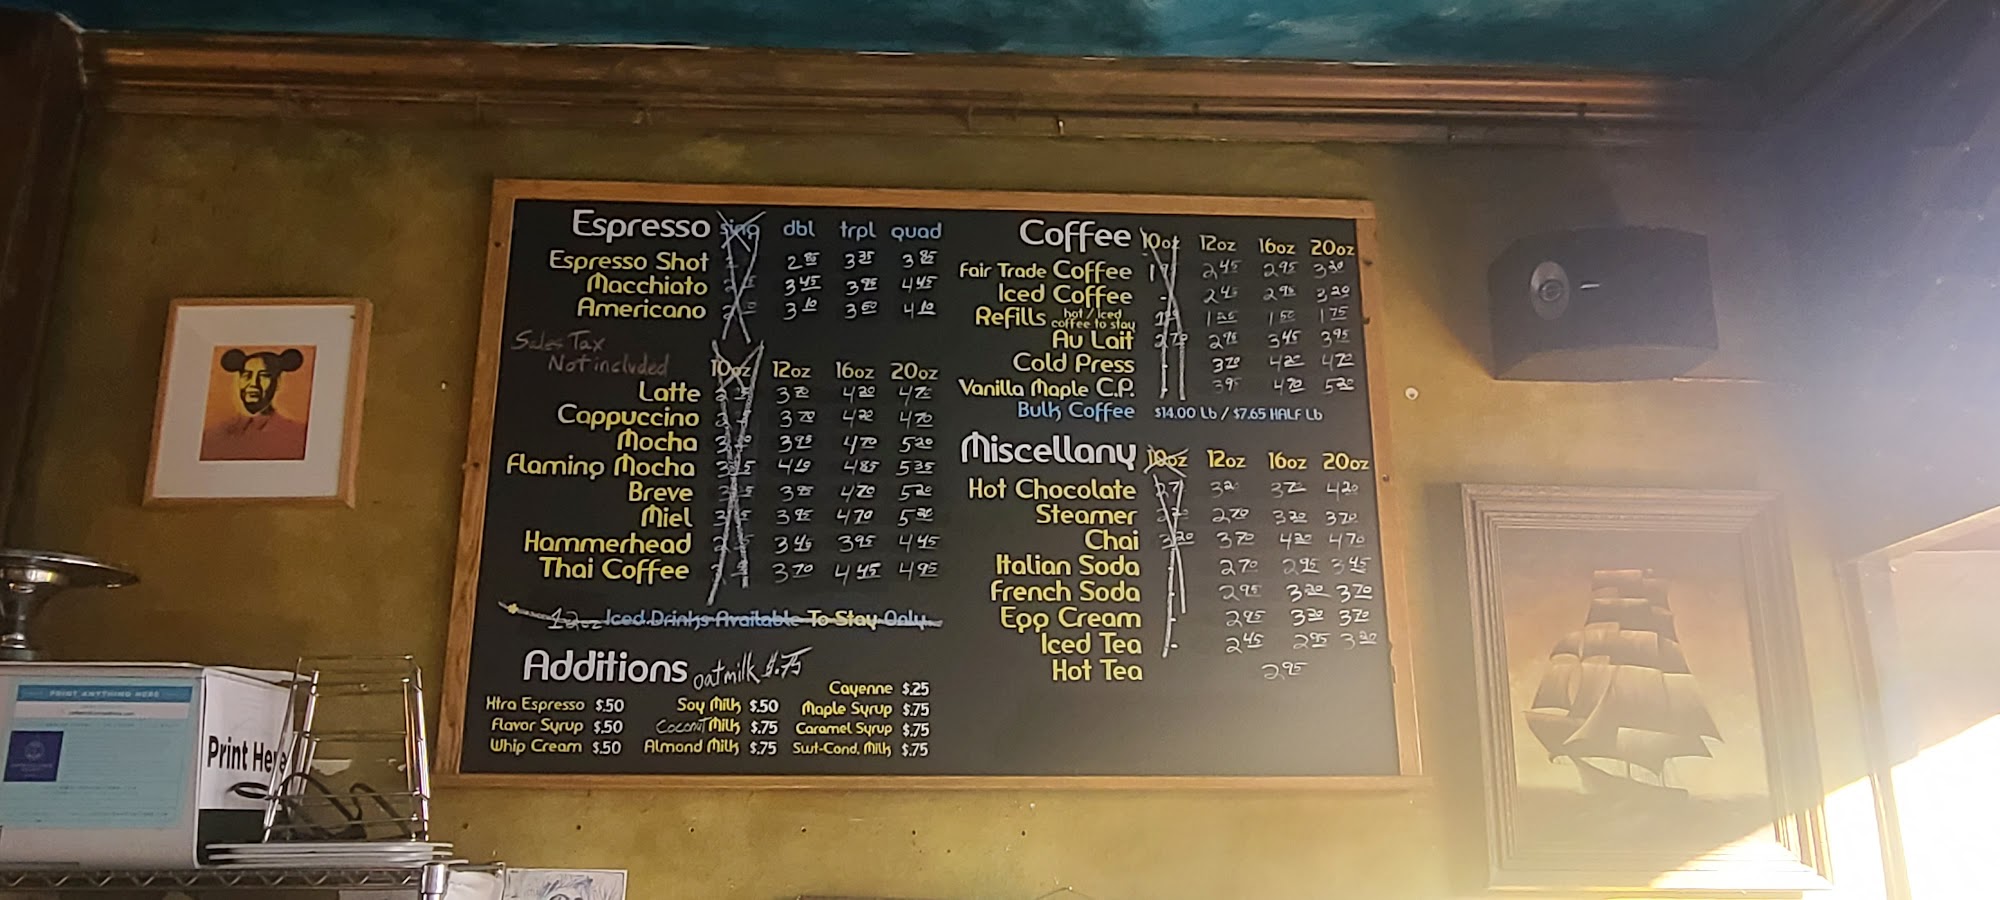 Espresso sing dbl trpl quad
Espresso Shot 2 85 3 35 3 85
Macchiato 3 45 3 95 4 45
Americano 3 10 3 60 4 10
Sales Tax
Not included
10oz 12oz 16oz 20oz
Latte 3 70 4 20 4 70
Cappuccino 3 70 4 20 4 70
Mocha 3 95 4 70 5 20
Flaming Mocha 4 10 4 85 5 35
Breve 3 95 4 70 5 20
Miel 3 95 4 70 5 20
Hammerhead 3 45 3 95 4 45
Thai Coffee 3 70 4 45 4 95
12oz Iced Drinks Available To Stay Only
Additions oatmilk $.75
Xtra Espresso $.50
Flavor Syrup $.50
Whip Cream $.50
Soy Milk $.50
Coconut Milk $.75
Almond Milk $.75
Cayenne $.25
Maple Syrup $.75
Caramel Syrup $.75
Swt-Cond. Milk $.75
Coffee 10oz 12oz 16oz 20oz
Fair Trade Coffee 2 45 2 95 3 20
Iced Coffee - 2 45 2 95 3 20
Refills hot / iced coffee to stay 1 50 1 75
Au Lait 2 70 2 95 3 45 3 95
Cold Press - 3 70 4 20 4 70
Vanilla Maple C.P. - 3 95 4 70 5 20
Bulk Coffee $14.00 Lb / $7.65 HALF Lb
Miscellany 10oz 12oz 16oz 20oz
Hot Chocolate 3 20 3 70 4 20
Steamer 2 70 3 20 3 70
Chai 3 20 3 70 4 20 4 70
Italian Soda - 2 70 2 95 3 45
French Soda - 2 95 3 20 3 70
Egg Cream - 2 95 3 20 3 70
Iced Tea - 2 45 2 95 3 20
Hot Tea 2 95
PRINT ANYTHING HERE
Print Here